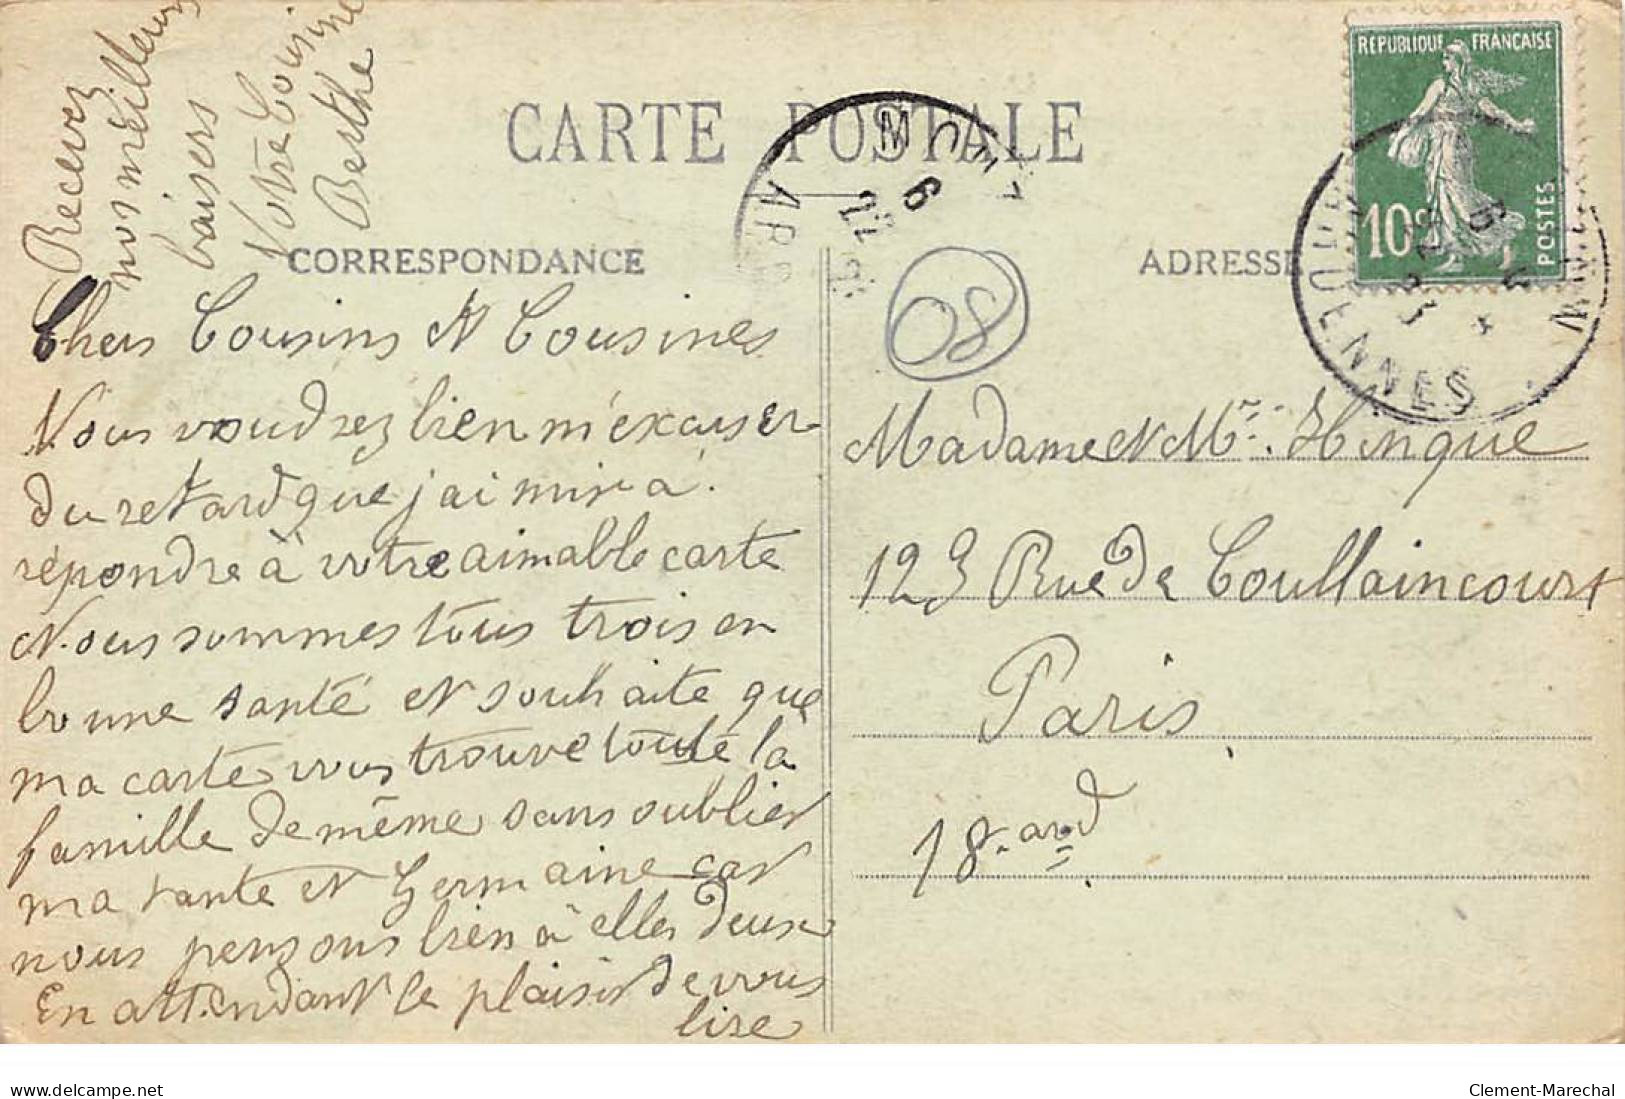 Recevez
nos meilleurs
baisers
Votre Cousine
Berthe
CARTE POSTALE
CORRESPONDANCE
ADRESSE
REPUBLIQUE FRANÇAISE
10c
POSTES
ARDENNES
08
Chers Cousins et Cousines
Vous voudrez bien m'excuser
du retard que j'ai mis à
répondre à votre aimable carte
Nous sommes tous trois en
bonne santé et souhaite que
ma carte vous trouve toute la
famille de même sans oublier
ma tante et Germaine car
nous pensons bien à elles deux
En attendant le plaisir de vous
lire
Madame et Mr. Hinque
123 Rue de Coullaincourt
Paris
18e ard
delcampe.net
Clement-Marechal